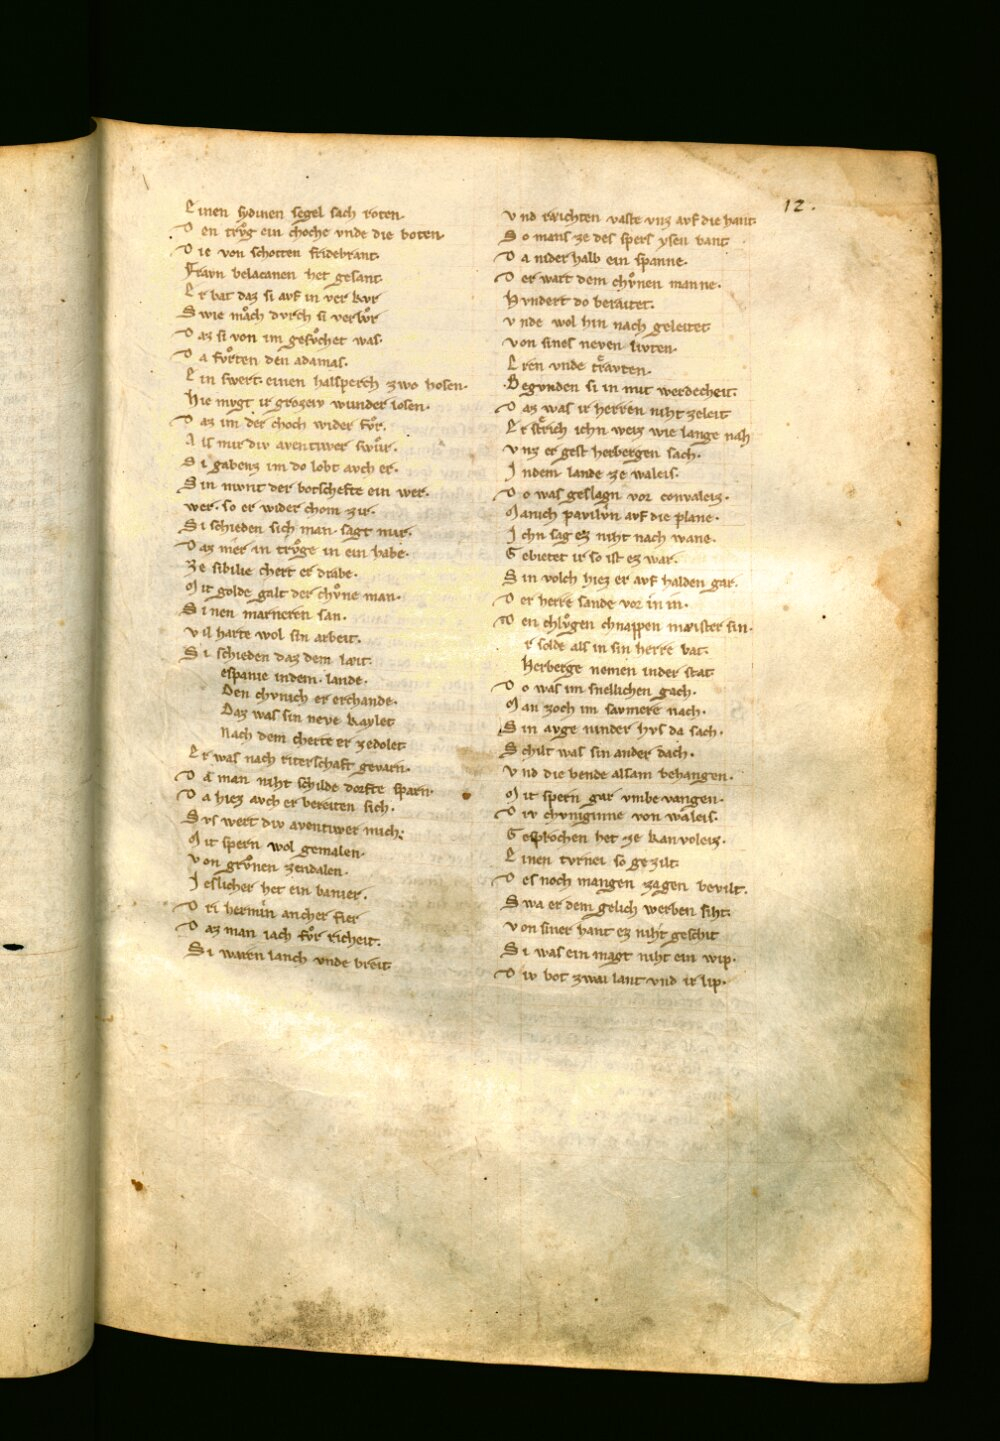 12.
E inen sydinen segel sach roten.
D en trůg ein choche vnde die boten
D ie von schotten fridebrant.
Fravn belacanen het gesant.
E r bat daz si avf in ver kvr
S wie måch dvrch si verlůr
D az si von im gesůchet was.
D a fůrten den adamas.
E in swert. einen halsperch zwo hosen.
Hie mvgt ir grozew wunder losen.
D az im der choch wider fůr.
A ls mir div aventiwer swůr.
S i gabenz im do lobt avch er.
S in mvnt der botschefte ein wer.
wer. so er wider chom zir.
S i schieden sich man. sagt mir.
D az mer in trůge in ein habe.
Ze sibilie chert er drabe.
M it golde galt der chůne man.
S inen marneren san.
v il harte wol sin arbeit.
S i schieden daz dem lait
espanie indem. lande.
Den chvnich er erchande.
Daz was sin neve kaylet
Nach dem cherte er zedolet
E r was nach riterschaft gevarn.
D a man niht schilde dorfte sparn.
D a hiez avch er bereiten sich.
S vs wert div aventiwer mich.
M it spern wol gemalen.
v on grůnen zendalen.
I eslicher het ein banier.
D ri hermin ancher fier
D az man iach fůr richeit.
S i waren lanch vnde breit
v nd raichten vaste vnz avf die hant
S o mans ze des spers ysen bant
D a nider halb ein spanne.
D er wart dem chůnen manne.
H vndert do beraitet.
v nde wol hin nach geleitet
von sines neven livten.
E ren vnde travten.
B egvnden si in mit werdecheit.
D az was ir herren niht zeleit
E r streich ichn weiz wie lange nah
v nz er gest herbergen sach.
I ndem lande ze waleis.
D o was geslagn vor convaleiz.
M anich pavilvn avf die plane.
I chn sag ez niht nach wane.
G ebietet ir so ist ez war.
S in volch hiez er avf halden gar.
D er herre sande vor in in.
D en chlůgen chnappen maister sin.
r solde als in sin herre bat.
Herberge nemen inder stat
D o was im snellichen gach.
M an zoch im savmere nach.
S in avge ninder hvs da sach.
S chilt was sin ander dach.
v nd die vende allsam behangen.
M it spern gar vmbe vangen.
D iv chvniginne von waleis.
G esprochen het ze kanvoleiz.
E inen tvrnei so gezilt
D es noch mangen zagen bevilt.
S wa er dem gelich werben siht.
v on siner hant ez niht geschit
S i was ein magt niht ein wip.
D iv bot zwai lant vnd ir lip.